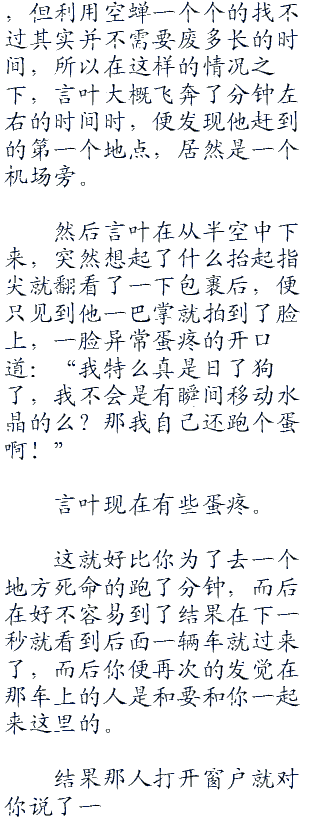 ，但利用空蝉一个个的找不
过其实并不需要废多长的时
间，所以在这样的情况之
下，言叶大概飞奔了分钟左
右的时间时，便发现他赶到
的第一个地点，居然是一个
机场旁。
然后言叶在从半空中下
来，突然想起了什么抬起指
尖就翻看了一下包裹后，便
只见到他一巴掌就拍到了脸
上，一脸异常蛋疼的开口
道：“我特么真是日了狗
了，我不会是有瞬间移动水
晶的么？那我自己还跑个蛋
啊！”
言叶现在有些蛋疼。
这就好比你为了去一个
地方死命的跑了分钟，而后
在好不容易到了结果在下一
秒就看到后面一辆车就过来
了，而后你便再次的发觉在
那车上的人是和要和你一起
来这里的。
结果那人打开窗户就对
你说了一